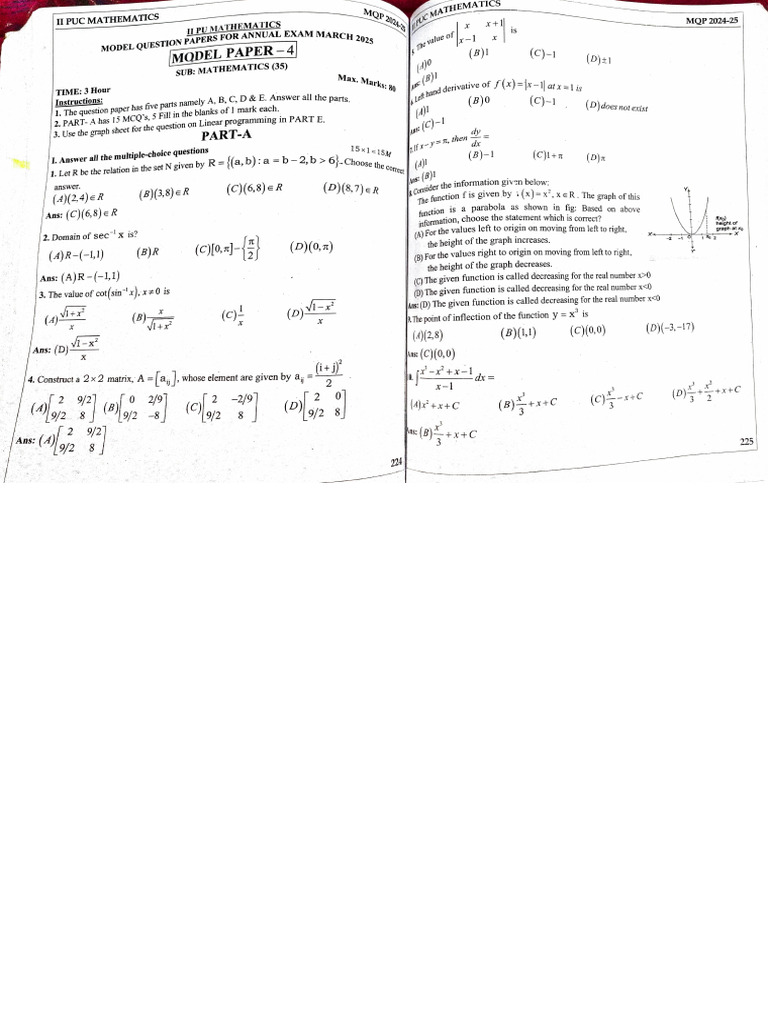 II PUC MATHEMATICS MQP 2024-25
II PU MATHEMATICS
MODEL QUESTION PAPERS FOR ANNUAL EXAM MARCH 2025
MODEL PAPER – 4
SUB: MATHEMATICS (35)
TIME: 3 Hour Max. Marks: 80
Instructions:
1. The question paper has five parts namely A, B, C, D & E. Answer all the parts.
2. PART- A has 15 MCQ's, 5 Fill in the blanks of 1 mark each.
3. Use the graph sheet for the question on Linear programming in PART E.
PART-A
I. Answer all the multiple-choice questions 15×1=15M
1. Let R be the relation in the set N given by R = {(a,b) : a = b − 2, b > 6}. Choose the correct
answer.
(A)(2,4)∈R (B)(3,8)∈R (C)(6,8)∈R (D)(8,7)∈R
Ans: (C)(6,8)∈R
2. Domain of sec⁻¹ x is?
(A)R−(−1,1) (B)R (C)[0,π]−{π/2} (D)(0,π)
Ans: (A)R−(−1,1)
3. The value of cot(sin⁻¹ x), x≠0 is
(A) √(1+x²)/x (B) x/√(1+x²) (C) 1/x (D) √(1−x²)/x
Ans: (D) √(1−x²)/x
4. Construct a 2×2 matrix, A = [aᵢⱼ], whose element are given by aᵢⱼ = (i+j)²/2
(A)[2 9/2; 9/2 8] (B)[0 2/9; 9/2 −8] (C)[2 −2/9; 9/2 8] (D)[2 0; 9/2 8]
Ans: (A)[2 9/2; 9/2 8]
224
II PUC MATHEMATICS MQP 2024-25
5. The value of |x x+1; x−1 x| is
(A)0 (B)1 (C)−1 (D)±1
Ans: (B)1
6. Left hand derivative of f(x)=|x−1| at x=1 is
(A)1 (B)0 (C)−1 (D) does not exist
Ans: (C)−1
7. If x−y=π, then dy/dx =
(A)1 (B)−1 (C)1+π (D)π
Ans: (B)1
8. Consider the information given below:
The function f is given by f(x)=x², x∈R. The graph of this
function is a parabola as shown in fig: Based on above
information, choose the statement which is correct?
(A) For the values left to origin on moving from left to right,
the height of the graph increases.
(B) For the values right to origin on moving from left to right,
the height of the graph decreases.
(C) The given function is called decreasing for the real number x>0
(D) The given function is called decreasing for the real number x<0
Ans: (D) The given function is called decreasing for the real number x<0
9. The point of inflection of the function y = x³ is
(A)(2,8) (B)(1,1) (C)(0,0) (D)(−3,−17)
Ans: (C)(0,0)
10. ∫ (x³−x²+x−1)/(x−1) dx =
(A)x²+x+C (B) x³/3+x+C (C) x³/3−x+C (D) x³/3+x²/2+x+C
Ans: (B) x³/3+x+C
225